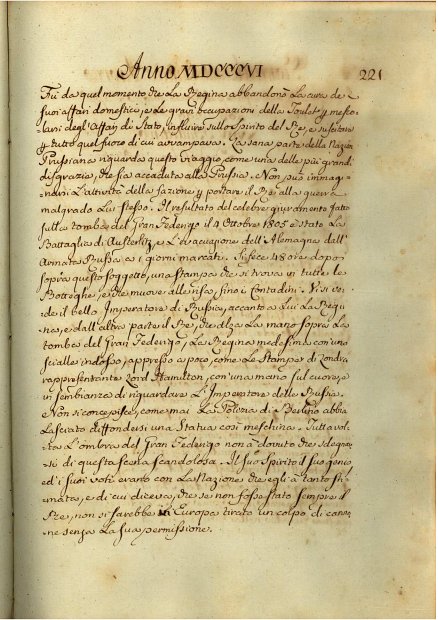 Anno MDCCCVI 221
Fù da quel momento che La Regina abbandonò La cura de
suoi affari domestici, e Le gravi occupazioni della Toulet p mesco-
larsi degl'affari di Stato, influire sullo Spirito del Re, e suscitare
p tutto quel fuoco di cui avvampava. La sana parte della Nazion
Prussiana riguarda questo viaggio come una delle più grandi
disgrazie, che sia accaduta alla Prussia. Non può immagi-
narsi L'attività della fazione p portare il Re alla guerra
malgrado Lui stesso. Il resultato del celebre giuramento fatto
sulla tomba del Gran Federigo il 4 Ottobre 1805 è stato La
Battaglia di Austerlitz, e L'evacuazione dell'Alemagna dall'
Armata Russa a i giorni marcati. Si fece 48 ore dopo
sopra questo soggetto, una stampa che si trova in tutte le
Botteghe, e che muove alle risa, fino i Contadini. Vi si ve-
de il bello Imperatore di Russia, accanto a Lui La Regi-
na, e dall'altra parte il Re, che alza La mano sopra La
tomba del Gran Federigo, La Regina medesima con uno
scialle indosso, appresso a poco, come Le Stampe di Londra
rappresentante Lord Hamilton, con una mano sul cuore, e
in sembianza di riguardare L'Imperatore delle Russie.
Non si concepisce, come mai La Polizia di Berlino abbia
Lasciato diffondersi una Statua così meschina. Tuttavol-
ta L'ombra del Gran Federigo non à dovuto che sdegnar-
si di questa scena scandolosa. Il suo Spirito il suo genio
ed'i suoi voti erano con La Nazione che egli à tanto sti-
mata, e di cui diceva, che se non fosse stato sempre il
Re, non si sarebbe in Europa tirato un colpo di canno-
ne senza La sua permissione.